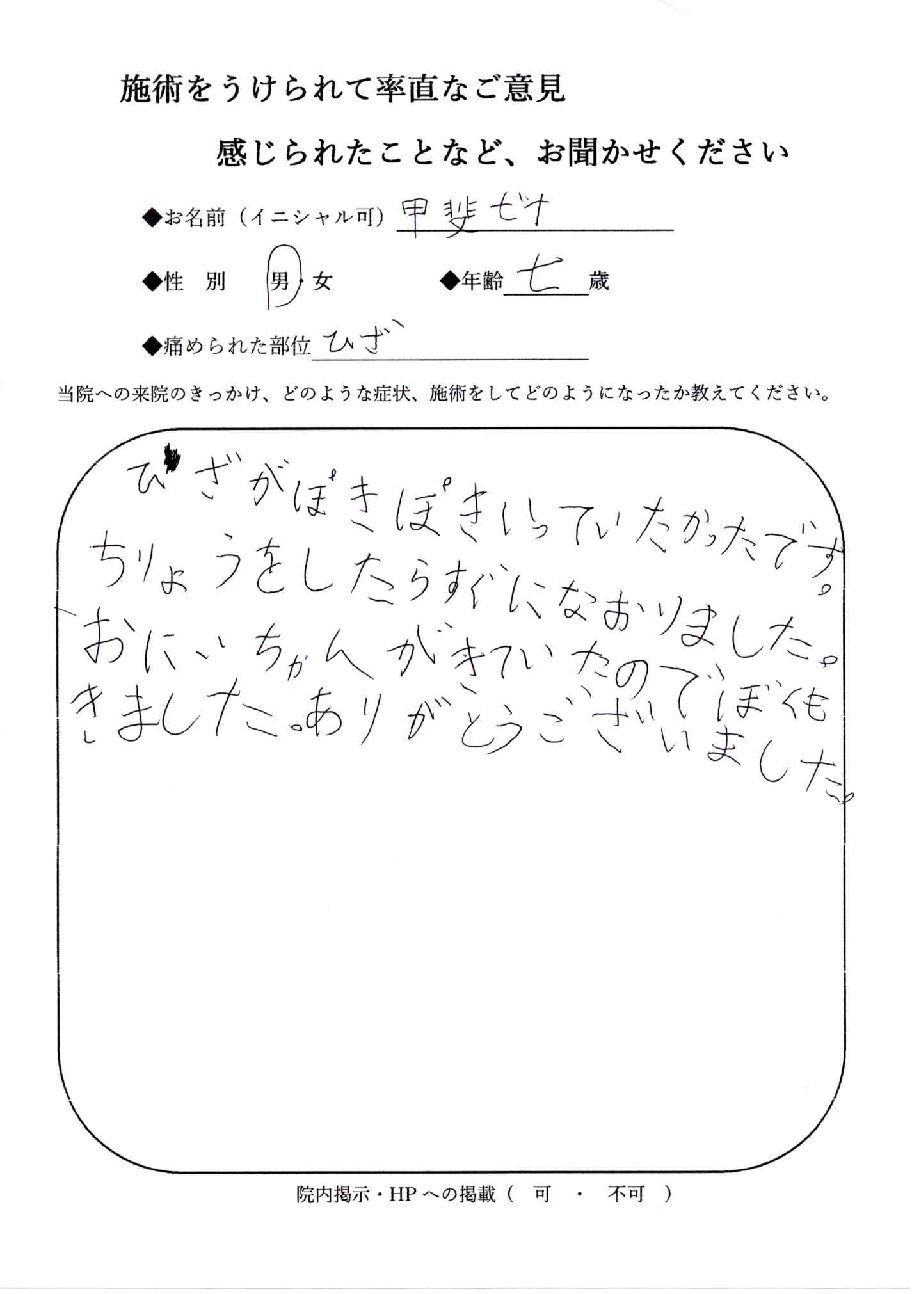 施術をうけられて率直なご意見
感じられたことなど、お聞かせください
◆お名前（イニシャル可） 甲斐ゼナ
◆性　別　男・女　　◆年齢 七 歳
◆痛められた部位 ひざ
当院への来院のきっかけ、どのような症状、施術をしてどのようになったか教えてください。
ひざがぽきぽきいっていたかったです。
ちりょうをしたらすぐになおりました。
おにいちゃんがきていたのでぼくも
きました。ありがとうございました。
院内掲示・HP への掲載（　可　・　不可　）